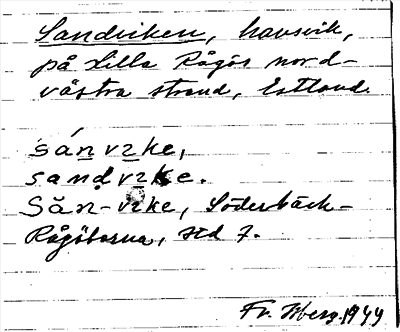 Sandviken, havsvik,
på Lilla Rågös nord-
västra strand, Estland.
sánvɪke,
sandvɪke.
Săn-vɪke, Söderbäck-
Rågöborna, std 7.
Fr. Wberg. 1949